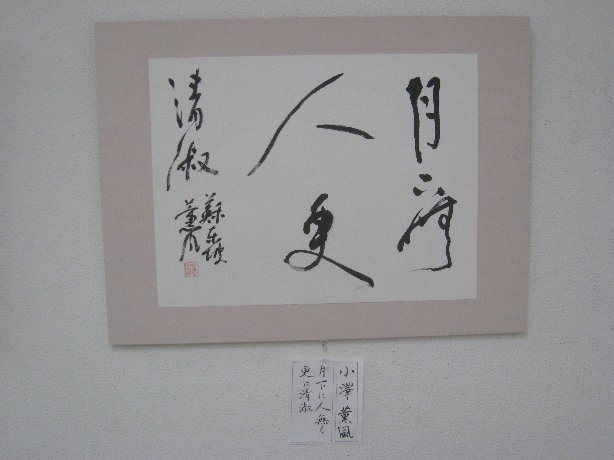 月下無
人更
清淑
蘇東坡
薫風
小澤薫風
月下に人無く
更に清淑